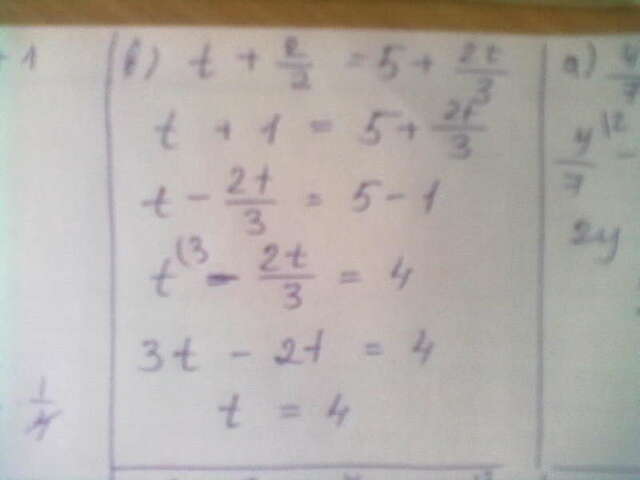 + 1
в) t + 2/2 = 5 + 2t/3
t + 1 = 5 + 2t/3
t - 2t/3 = 5 - 1
t^(3 - 2t/3 = 4
3t - 2t = 4
t = 4
1/4
a) y/7
y^12/7 -
2y